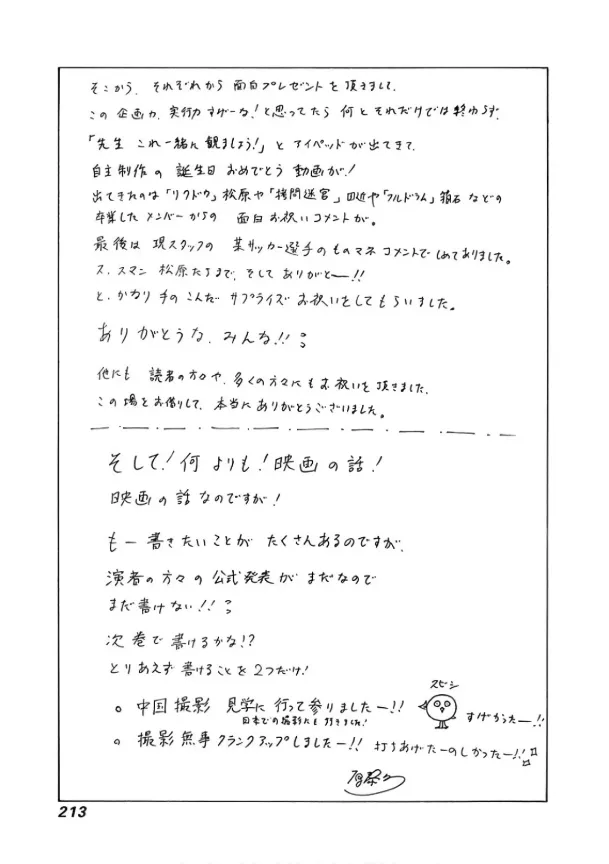 そこから、それぞれから 面白プレゼントを 頂きまして、
この 企画力、実行力 すげーな!と思ってたら 何と それだけでは終わらず、
「先生 これ一緒に 観ましょう!」と アイパッドが出てきて、
自主制作の 誕生日 おめでとう 動画が!
出てきたのは「リクドウ」松原や「拷問迷宮」田近や「フルドラム」箱石 などの
卒業した メンバーからの 面白お祝いコメントが。
最後は 現スタッフの 某サッカー選手のものマネコメントで しめてありました。
ス、スマン 松原たちまで、そして ありがとー!!
と、かなり 手のこんだ サプライズ お祝いをしてもらいました。
ありがとうな、みんな!!
他にも 読者の方々や、多くの方々にもお祝いを頂きました、
この場をお借りして、本当に ありがとうございました。
そして!何よりも!映画の話!
映画の話なのですが!
もー 書きたいことが たくさんあるのですが、
演者の方々の 公式発表が まだなので
まだ書けない!!
次巻で書けるかな!?
とりあえず 書けることを 2つだけ!
○ 中国撮影 見学に行って参りましたー!!
日本での撮影にも 行きました!
ズビシ
すげかったー!!
○ 撮影無事クランクアップしましたー!! 打ちあげたーのしかったー!!
原泰久
213